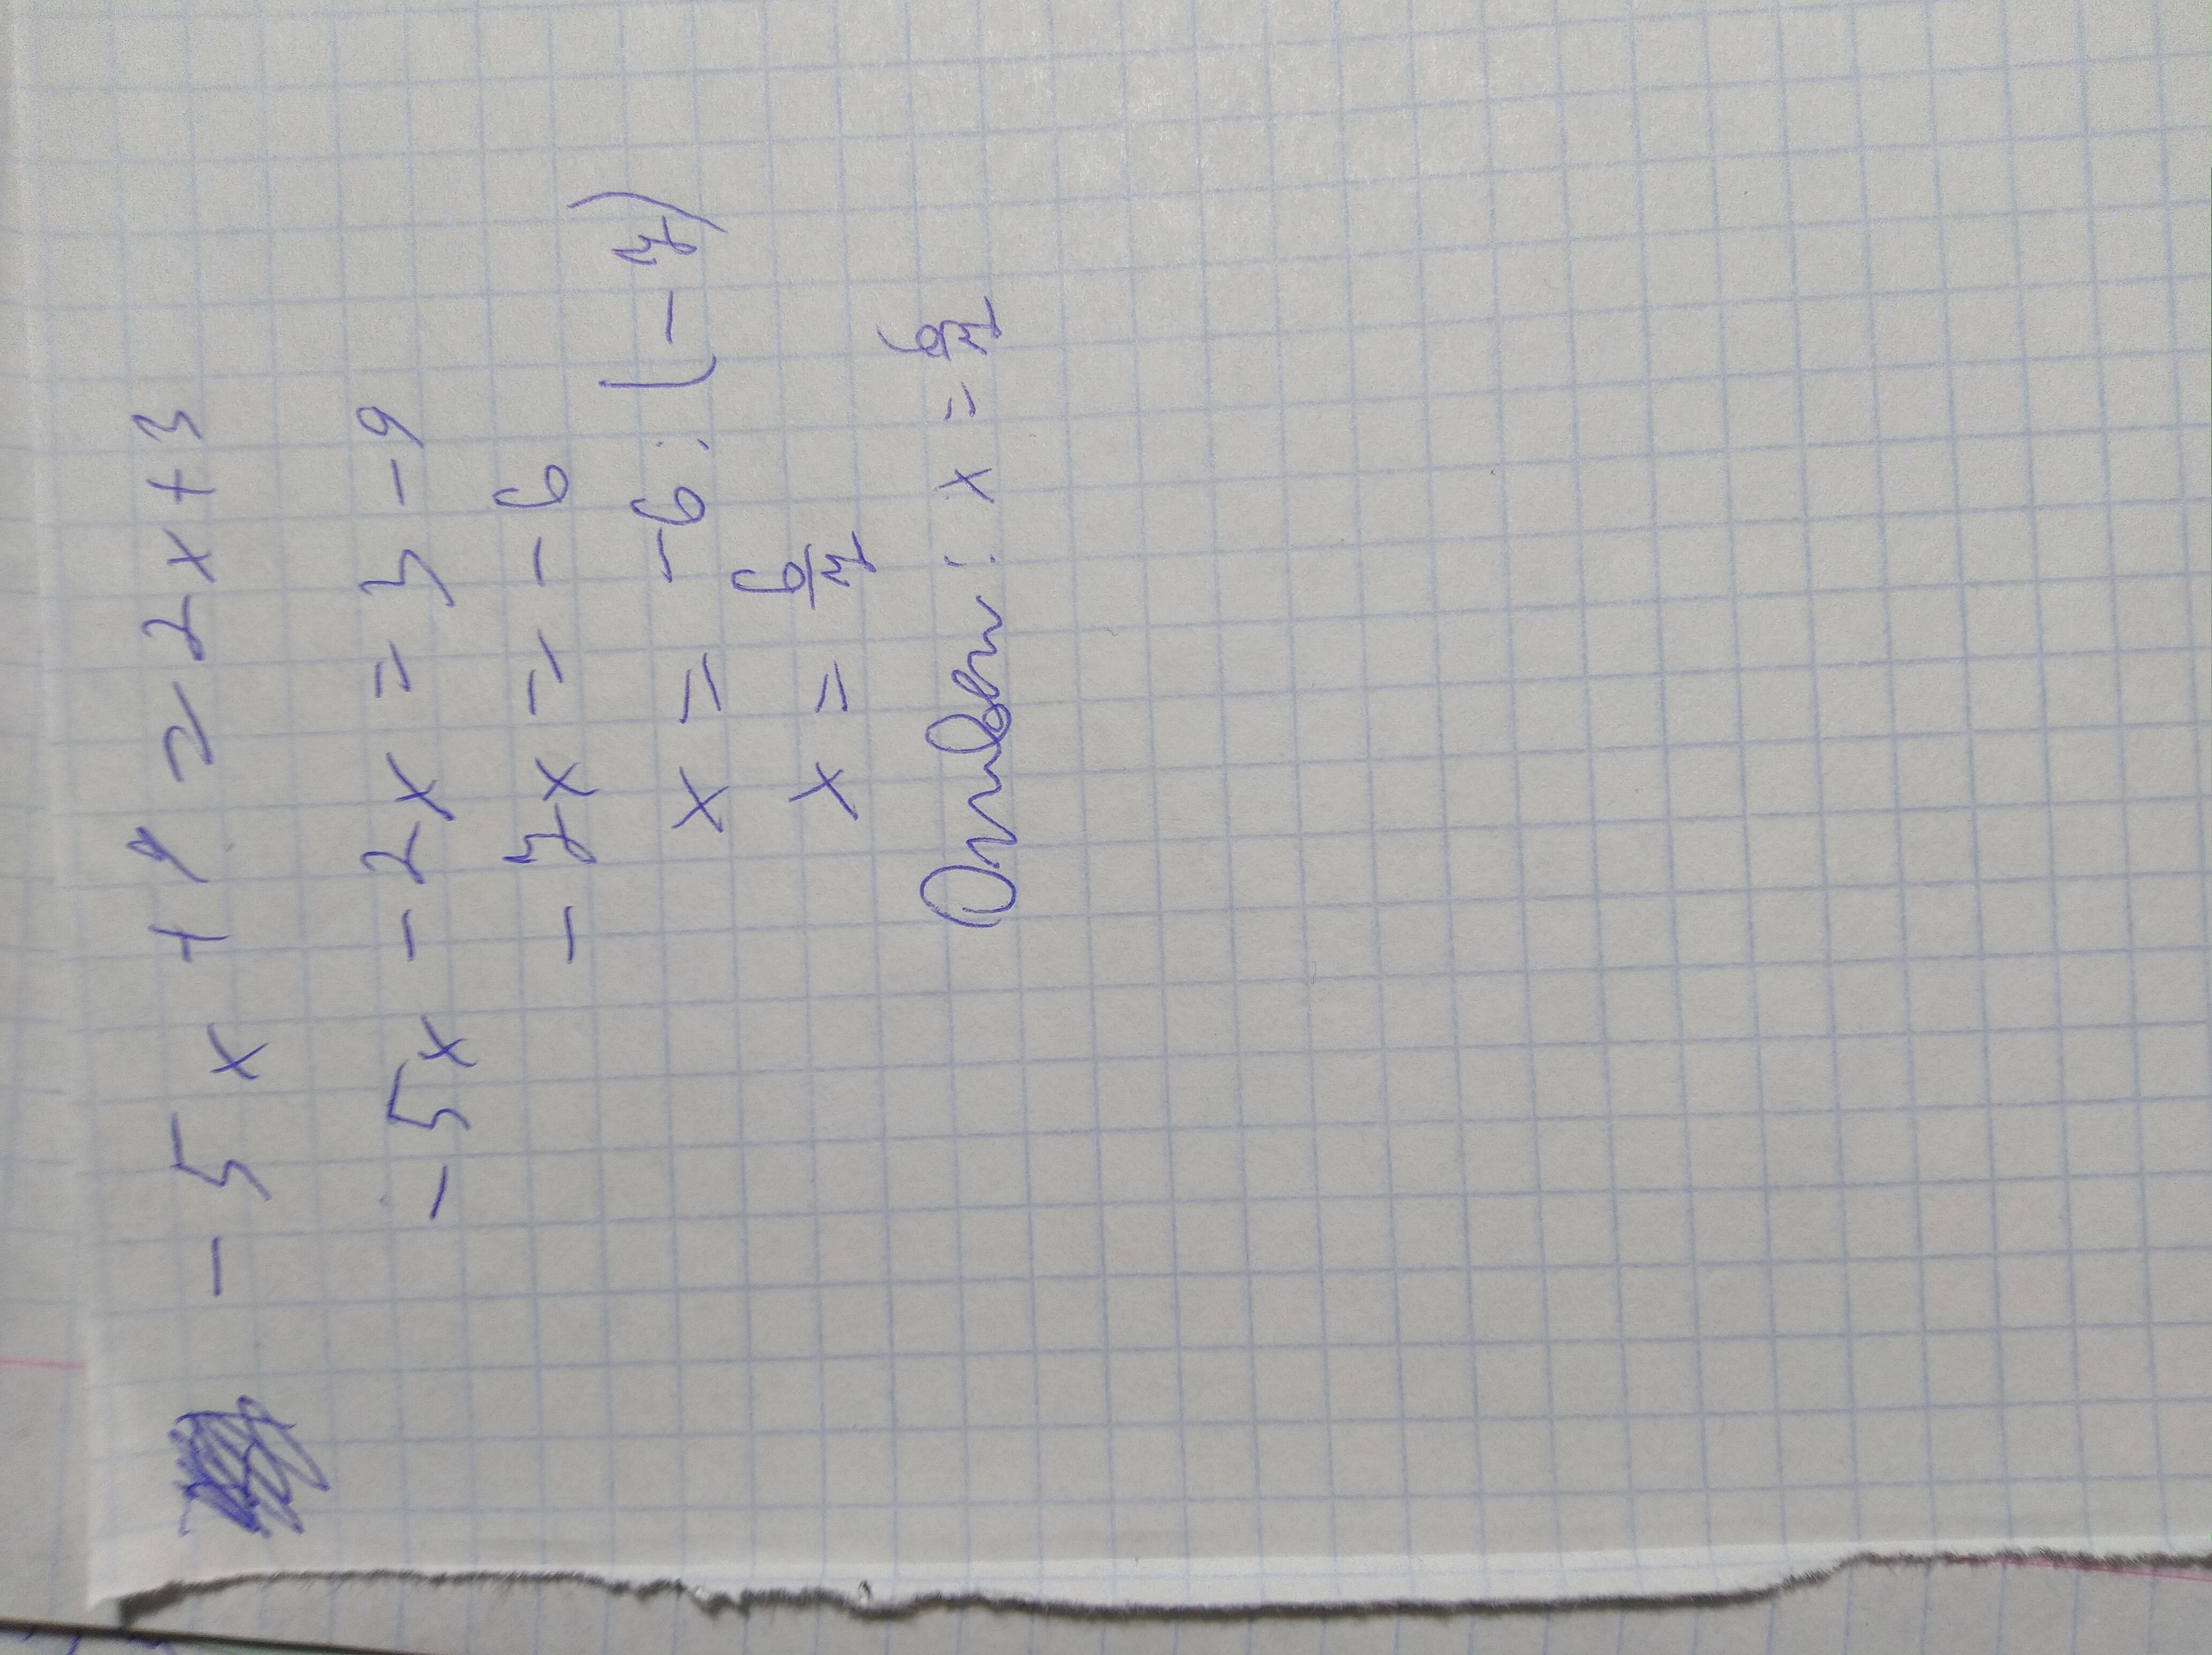 -5x + 9 = 2x + 3
-5x - 2x = 3 - 9
-7x = -6
x = -6 : (-7)
x = 6/7
Ответ: x = 6/7